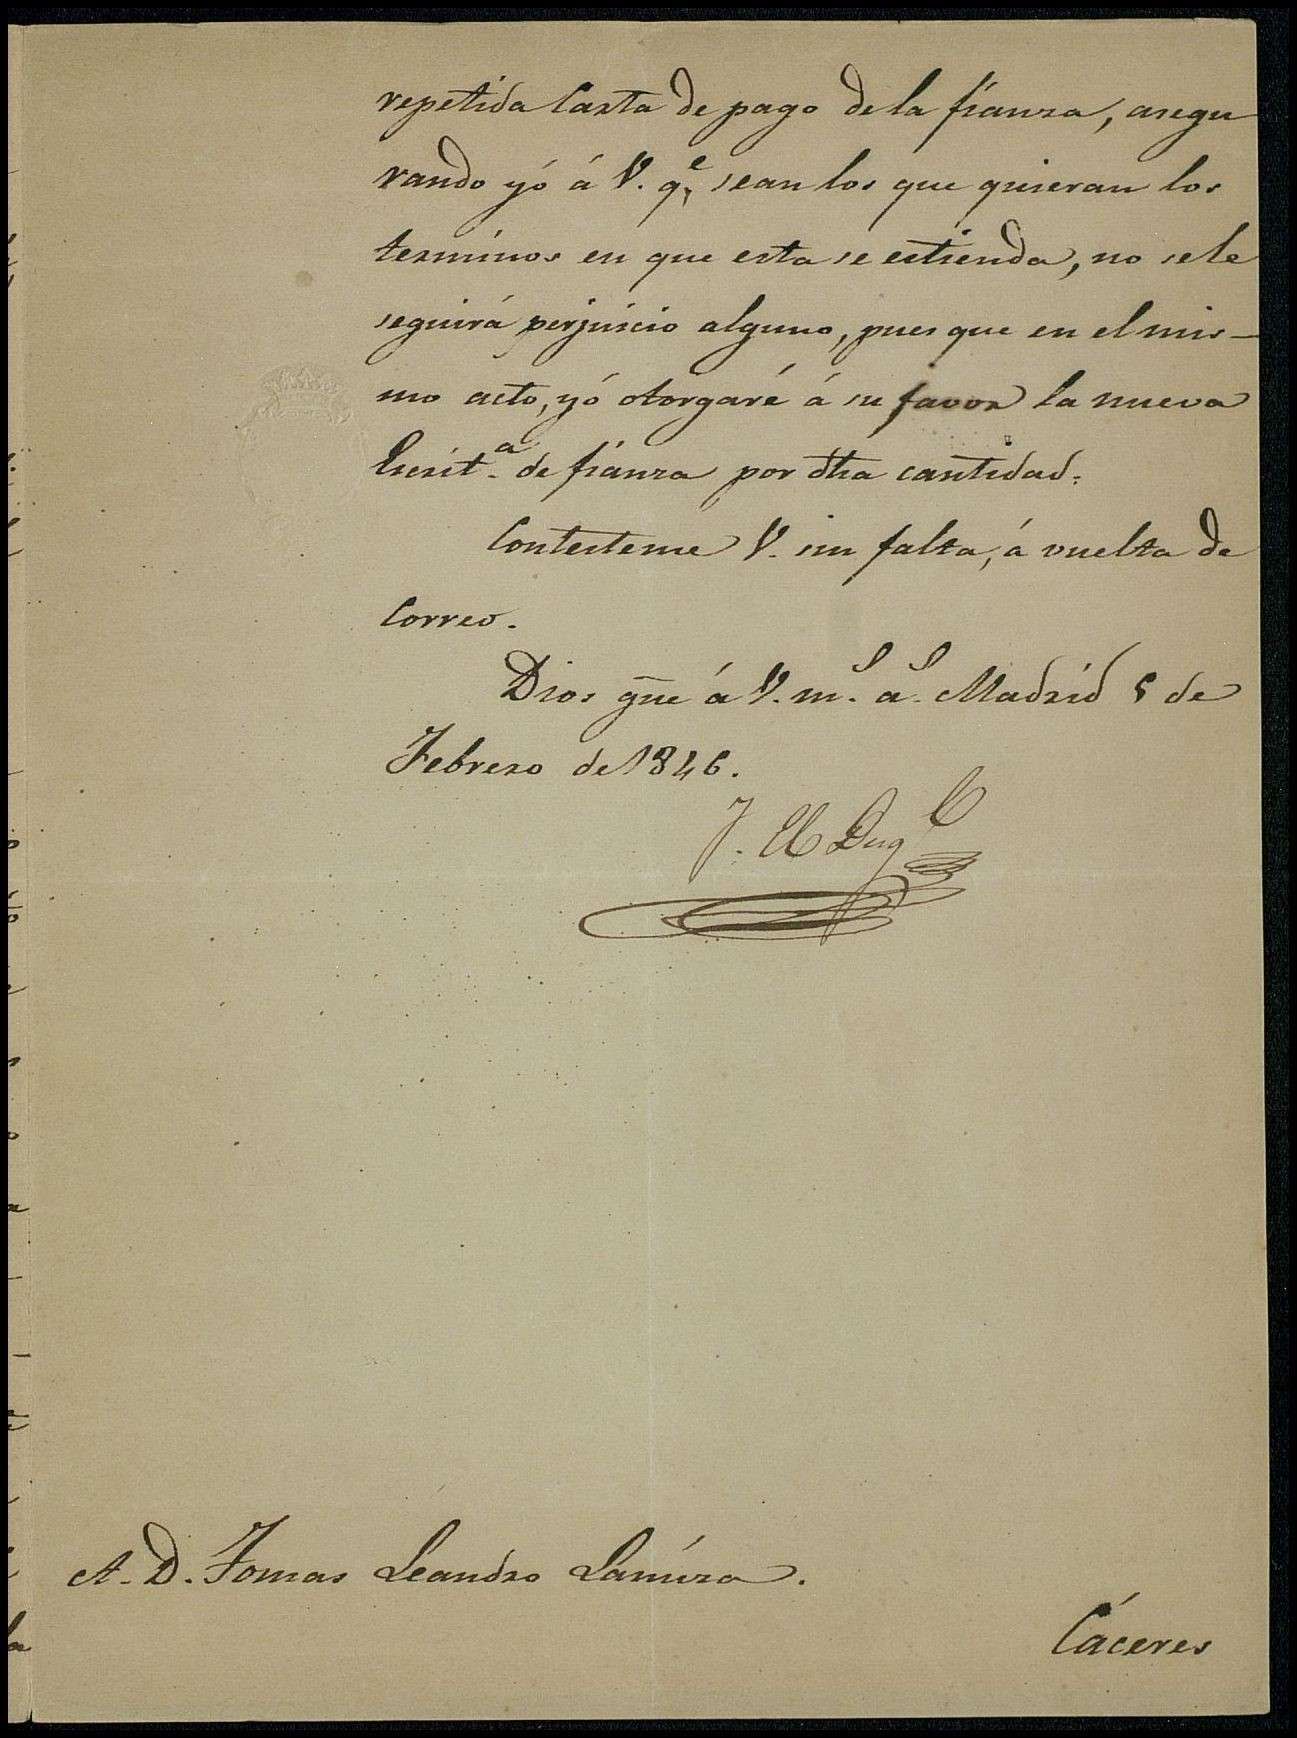 repetida Carta de pago de la fianza, asegu
rando yó á V. q.e sean los que quieran los
terminos en que esta se estienda, no se le
seguirá perjuicio alguno, pues que en el mis-
mo acto, yó otorgaré á su favor la nueva
Escrit.a de fianza por dha cantidad.
Contesteme V. sin falta, á vuelta de
Correo.
Dios gue á V. m.s a.s Madrid 5 de
Febrero de 1846.
A. D. Tomas Leandro
Cáceres